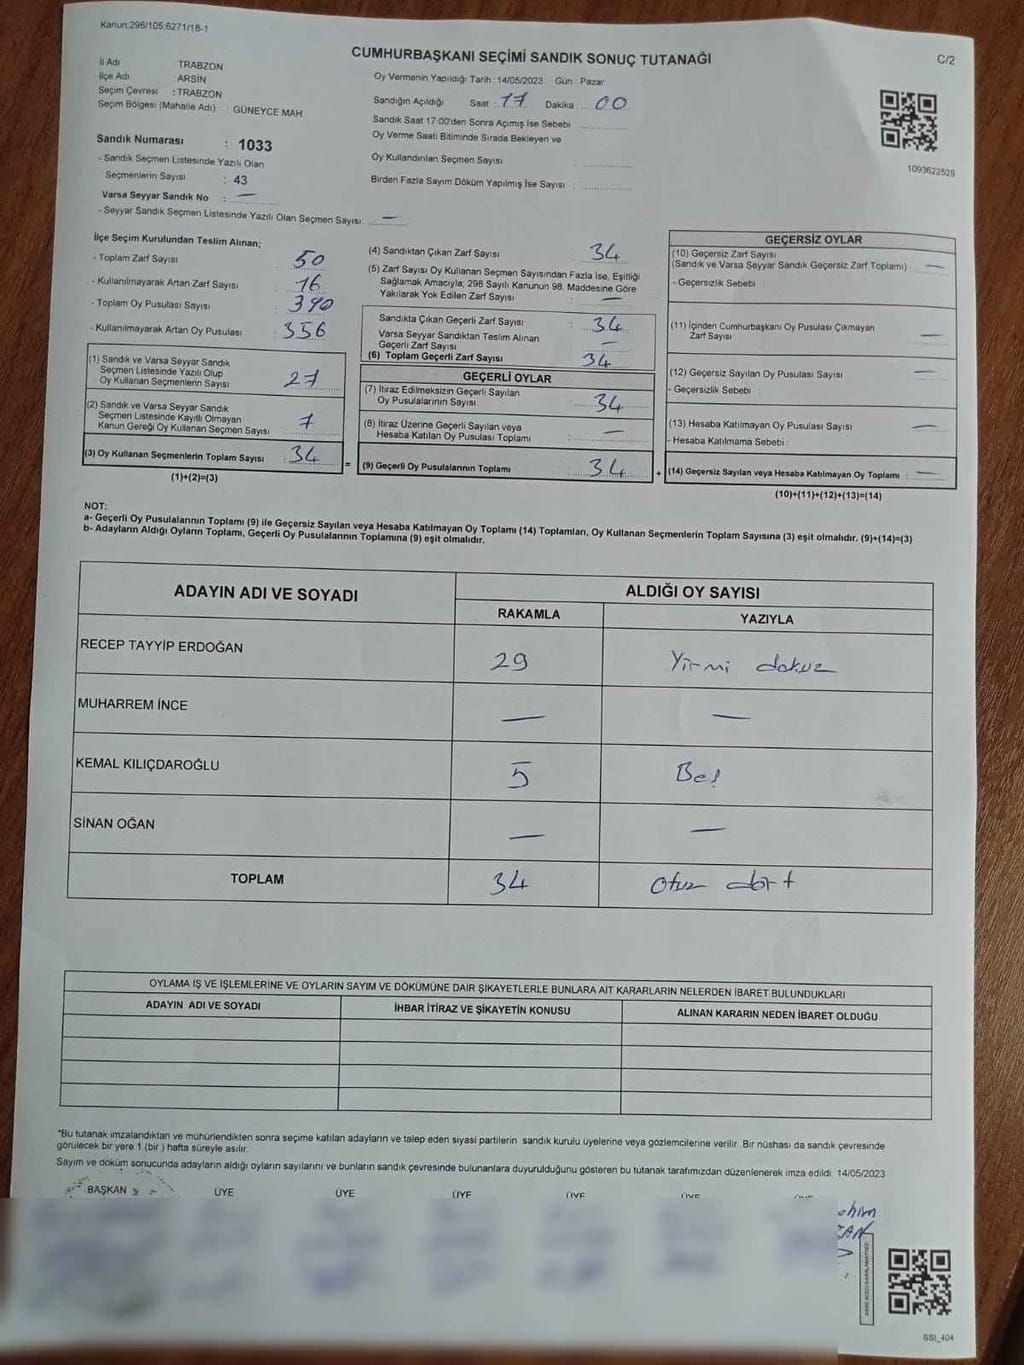 Kanun;298/105;6271/18-1
CUMHURBAŞKANI SEÇİMİ SANDIK SONUÇ TUTANAĞI
C/2
İl Adı TRABZON
İlçe Adı : ARSİN
Seçim Çevresi : TRABZON
Seçim Bölgesi (Mahalle Adı) : GÜNEYCE MAH
Sandık Numarası : 1033
- Sandık Seçmen Listesinde Yazılı Olan
Seçmenlerin Sayısı : 43
Varsa Seyyar Sandık No : —
- Seyyar Sandık Seçmen Listesinde Yazılı Olan Seçmen Sayısı: —
Oy Vermenin Yapıldığı Tarih : 14/05/2023 Gün Pazar
Sandığın Açıldığı Saat : 17 Dakika : 00
Sandık Saat 17:00'den Sonra Açımış İse Sebebi
Oy Verme Saati Bitiminde Sırada Bekleyen ve
Oy Kullandırılan Seçmen Sayısı
Birden Fazla Sayım Döküm Yapılmış İse Sayısı :
1093622529
İlçe Seçim Kurulundan Teslim Alınan;
- Toplam Zarf Sayısı : 50
- Kullanılmayarak Artan Zarf Sayısı : 16
- Toplam Oy Pusulası Sayısı : 390
- Kullanılmayarak Artan Oy Pusulası : 356
(1) Sandık ve Varsa Seyyar Sandık
Seçmen Listesinde Yazılı Olup
Oy Kullanan Seçmenlerin Sayısı : 27
(2) Sandık ve Varsa Seyyar Sandık
Seçmen Listesinde Kayıtlı Olmayan
Kanun Gereği Oy Kullanan Seçmen Sayısı : 7
(3) Oy Kullanan Seçmenlerin Toplam Sayısı : 34
(1)+(2)=(3)
=
(4) Sandıktan Çıkan Zarf Sayısı : 34
(5) Zarf Sayısı Oy Kullanan Seçmen Sayısından Fazla İse, Eşitliği
Sağlamak Amacıyla; 298 Sayılı Kanunun 98. Maddesine Göre
Yakılarak Yok Edilen Zarf Sayısı : —
Sandıkta Çıkan Geçerli Zarf Sayısı : 34
Varsa Seyyar Sandıktan Teslim Alınan
Geçerli Zarf Sayısı : —
(6) Toplam Geçerli Zarf Sayısı : 34
GEÇERLİ OYLAR
(7) İtiraz Edilmeksizin Geçerli Sayılan
Oy Pusulalarının Sayısı : 34
(8) İtiraz Üzerine Geçerli Sayılan veya
Hesaba Katılan Oy Pusulası Toplamı : —
(9) Geçerli Oy Pusulalarının Toplamı : 34
+
GEÇERSİZ OYLAR
(10) Geçersiz Zarf Sayısı
(Sandık ve Varsa Seyyar Sandık Geçersiz Zarf Toplamı) : —
- Geçersizlik Sebebi :
(11) İçinden Cumhurbaşkanı Oy Pusulası Çıkmayan
Zarf Sayısı : —
(12) Geçersiz Sayılan Oy Pusulası Sayısı : —
- Geçersizlik Sebebi :
(13) Hesaba Katılmayan Oy Pusulası Sayısı : —
- Hesaba Katılmama Sebebi :
(14) Geçersiz Sayılan veya Hesaba Katılmayan Oy Toplamı : —
(10)+(11)+(12)+(13)=(14)
NOT:
a- Geçerli Oy Pusulalarının Toplamı (9) ile Geçersiz Sayılan veya Hesaba Katılmayan Oy Toplamı (14) Toplamları, Oy Kullanan Seçmenlerin Toplam Sayısına (3) eşit olmalıdır. (9)+(14)=(3)
b- Adayların Aldığı Oyların Toplamı, Geçerli Oy Pusulalarının Toplamına (9) eşit olmalıdır.
ADAYIN ADI VE SOYADI ALDIĞI OY SAYISI
RAKAMLA YAZIYLA
RECEP TAYYİP ERDOĞAN 29 Yirmi dokuz
MUHARREM İNCE — —
KEMAL KILIÇDAROĞLU 5 Beş
SİNAN OĞAN — —
TOPLAM 34 Otuz dört
OYLAMA İŞ VE İŞLEMLERİNE VE OYLARIN SAYIM VE DÖKÜMÜNE DAİR ŞİKAYETLERLE BUNLARA AİT KARARLARIN NELERDEN İBARET BULUNDUKLARI
ADAYIN ADI VE SOYADI İHBAR İTİRAZ VE ŞİKAYETİN KONUSU ALINAN KARARIN NEDEN İBARET OLDUĞU
*Bu tutanak imzalandıktan ve mühürlendikten sonra seçime katılan adayların ve talep eden siyasi partilerin sandık kurulu üyelerine veya gözlemcilerine verilir. Bir nüshası da sandık çevresinde
görülecek bir yere 1 (bir ) hafta süreyle asılır.
Sayım ve döküm sonucunda adayların aldığı oyların sayılarını ve bunların sandık çevresinde bulunanlara duyurulduğunu gösteren bu tutanak tarafımızdan düzenlenerek imza edildi. 14/05/2023
BAŞKAN ÜYE ÜYE ÜYE ÜYE ÜYE
SSt_404